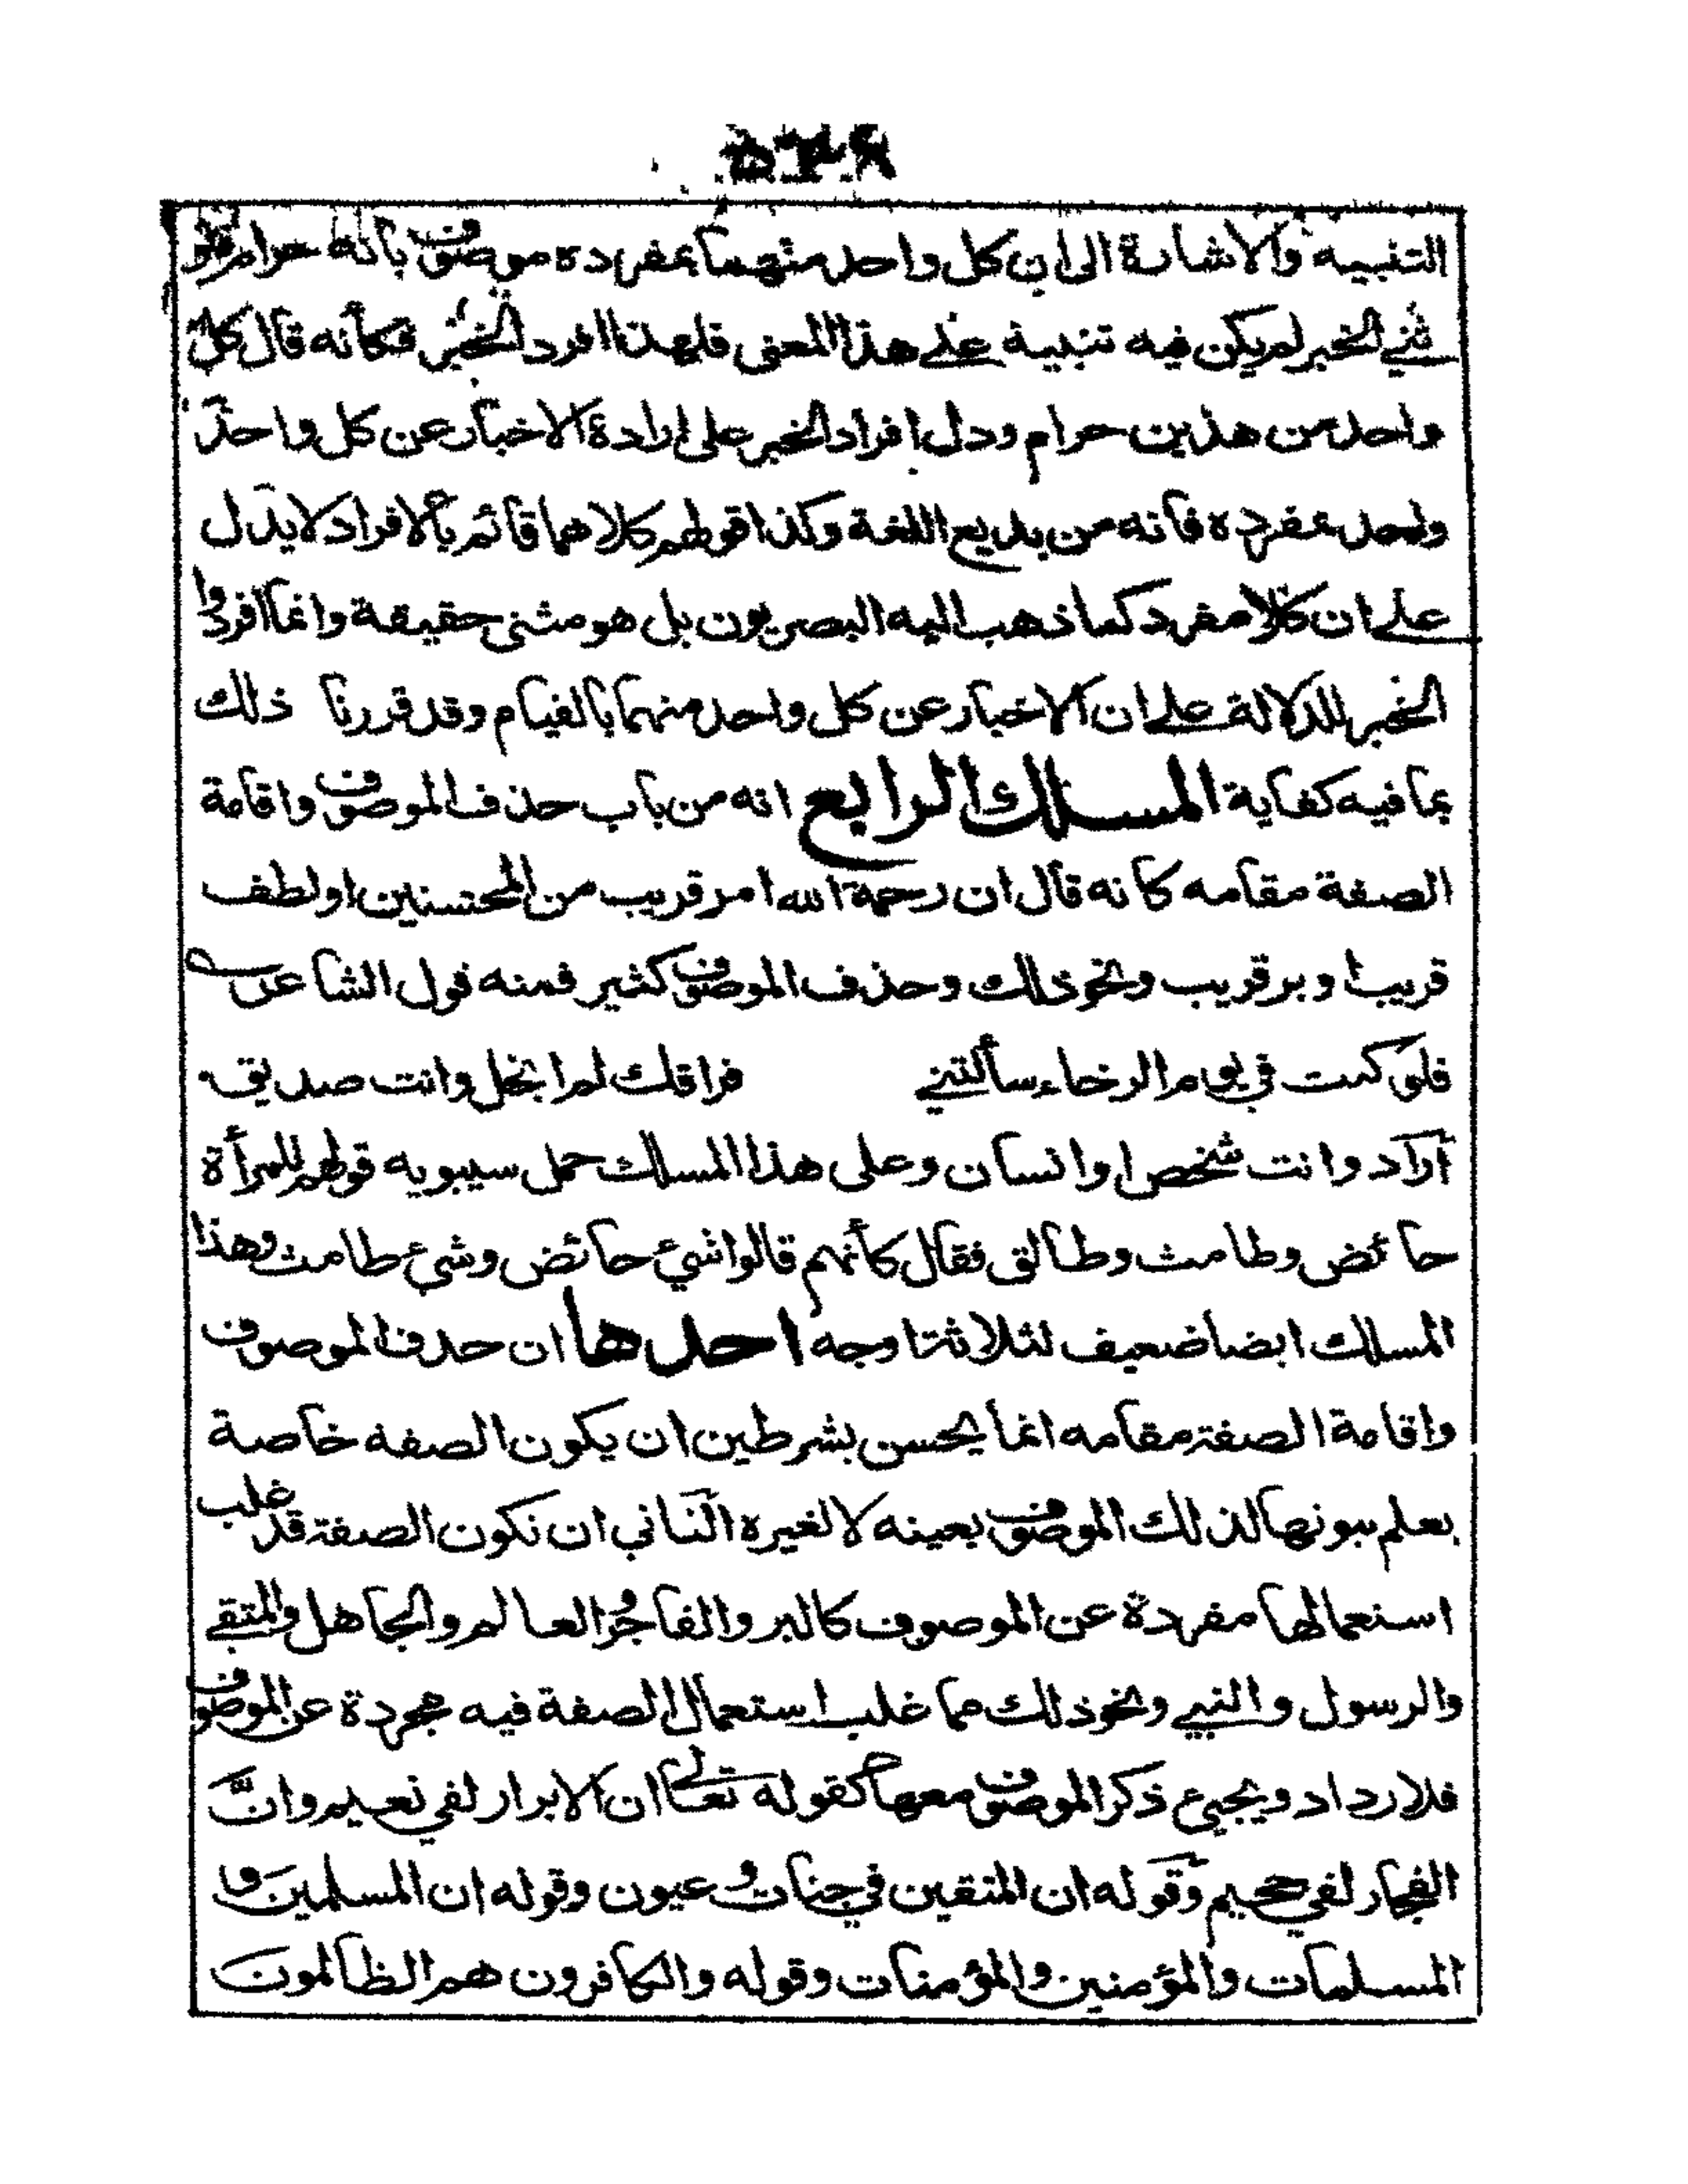 التنبيه والاشارة الى ان كل واحد منهما بمفرده موصوف بانه حرام فلو
ثني الخبر لم يكن فيه تنبيه على هذا المعنى فلهذا افرد الخبر فكأنه قال كل
واحد من هذين حرام ودل افراد الخبر على ارادة الاخبار عن كل واحد
واحد بمفرده فانه من بديع اللغة وكذا قولهم كلاهما قائم بالافراد لا يدل
على ان كلا مفرد كما ذهب اليه البصريون بل هو مثنى حقيقة وانما افردوا
الخبر للدلالة على ان الاخبار عن كل واحد منهما بالقيام وقد قررنا ذلك
بما فيه كفاية المسلك الرابع انه من باب حذف الموصوف واقامة
الصفة مقامه كانه قال ان رحمة الله امر قريب من المحتسنين او لطف
قريب او بر قريب ونحو ذلك وحذف الموصوف كثير فمنه قول الشاعر
فلو كنت في يوم الرخاء سألتني فراقك لم ابخل وانت صديق
أراد وانت شخص او انسان وعلى هذا المسلك حمل سيبويه قولهم للمرأة
حائض وطامث وطالق فقال كأنهم قالوا شيء حائض وشيء طامث وهذا
المسلك ايضا ضعيف لثلاثة اوجه احدها ان حذف الموصوف
واقامة الصفة مقامه انما يحسن بشرطين ان يكون الصفه خاصة
يعلم ثبوتها لذلك الموصوف بعينه لا لغيره الثاني ان تكون الصفة قد غلب
استعمالها مفردة عن الموصوف كالبر والفاجر والعالم والجاهل والمتقي
والرسول والنبي ونحو ذلك مما غلب استعمال الصفة فيه مجردة عن الموصوف
فلا يرد ويجيء ذكر الموصوف معها كقوله تعالى ان الابرار لفي نعيم وانّ
الفجار لفي جحيم وقوله ان المتقين في جنات وعيون وقوله ان المسلمين و
المسلمات والمؤمنين والمؤمنات وقوله والكافرون هم الظالمون